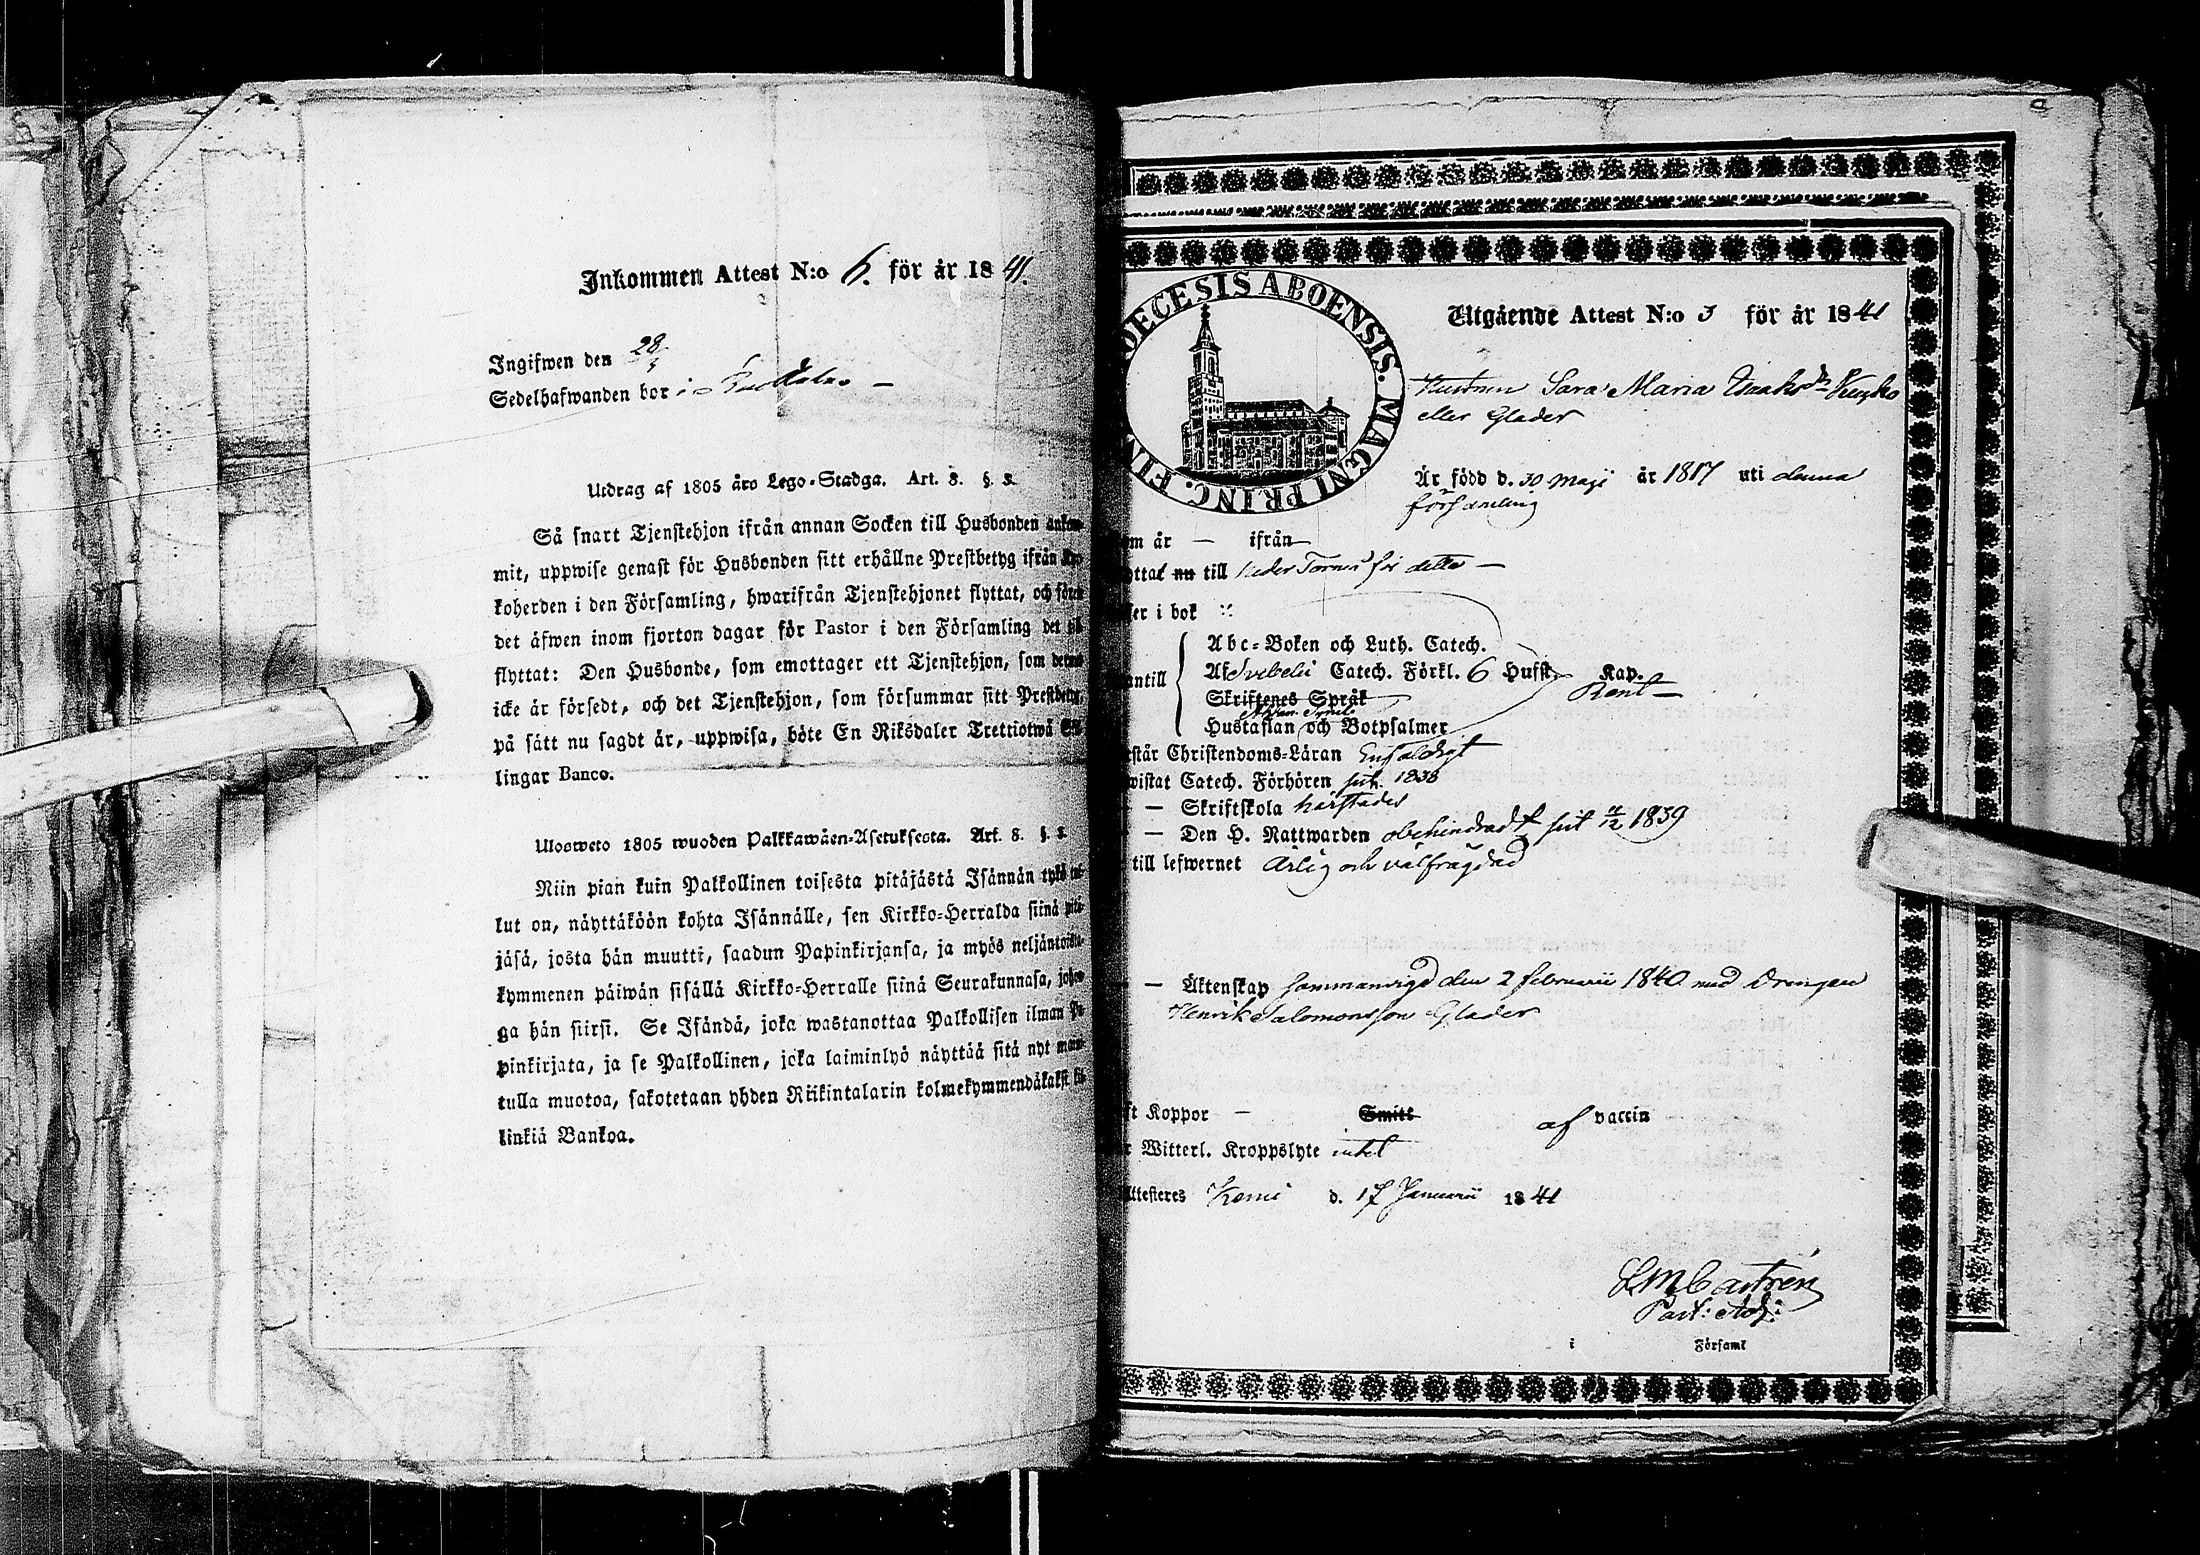 Inkommen Attest N:o 6. för år 1841.
Ingifwen den 28/3
Sedelhafwanden bor i
Utdrag af 1805 åro Lego-Stadga. Art. 8. §. 8.
Så snart Tjenstehjon ifrån annan Socken till Husbonden ankom-
mit, uppwise genast för Husbonden sitt erhållne Prestbetyg ifrån Kyr-
koherden i den Församling, hwarifrån Tjenstehjonet flyttat, och före
det äfwen inom fjorton dagar för Pastor i den Församling det till
flyttat: Den Husbonde, som emottager ett Tjenstehjon, som dermed
icke är försedt, och det Tjenstehjon, som försummar sitt Prestbetyg,
på sätt nu sagdt är, uppwisa, böte En Riksdaler Trettiotwå Skil-
lingar Banco.
Ulosweto 1805 wuoden Palkkawäen-Asetuksesta. Art. 8. §. 8.
Niin pian kuin Palkollinen toisesta pitäjästä Isännän tykö tul-
lut on, näyttäköön kohta Isännälle, sen Kirkko-Herralda siinä pitä-
jäsä, josta hän muutti, saadun Papinkirjansa, ja myös neljäntoista-
kymmenen päiwän sisällä Kirkko-Herralle siinä Seurakunnasa, johon-
ga hän siirsi. Se Isändä, joka wastanottaa Palkollisen ilman Pa-
pinkirjata, ja se Palkollinen, joka laiminlyö näyttää sitä nyt mai-
tulla muotoa, sakotetaan yhden Riikintalarin kolmekymmendäkaksi kil-
linkiä Bankoa.
DIOECESIS ABOENSIS. MAGNI PRINC. FIN
Utgående Attest N:o 3 för år 1841
Hustrun Sara Maria Isaksdr
eller Glader
Är född d. 30 Maji år 1817 uti denna
församling
om år — ifrån
yttat nu till Neder Torneå för detta —
ser i bok
Abc-Boken och Luth. Catech.
antill Af Svebelii Catech. Förkl. 6 Hufst Kap.
Skriftenes Språk Rent —
Hustaflan och Botpsalmer
rstår Christendoms-Läran Enfaldigt
wistat Catech. Förhören sist. 1838
— Skriftskola härstädes
— Den H. Nattwarden obehindradt sist 11/12 1839
till lefwernet Ärlig och välfrägdad
— Äktenskap Sammanvigd den 2 februarii 1840 med Drengen
Henrik Salomonsson Glader
ft Koppor — Smitt af vaccin
r Witterl. Kroppslyte intet
Attesteres Kemi d. 17 Januarii 1841
LMCastrén
Past: Adj:
i Församl